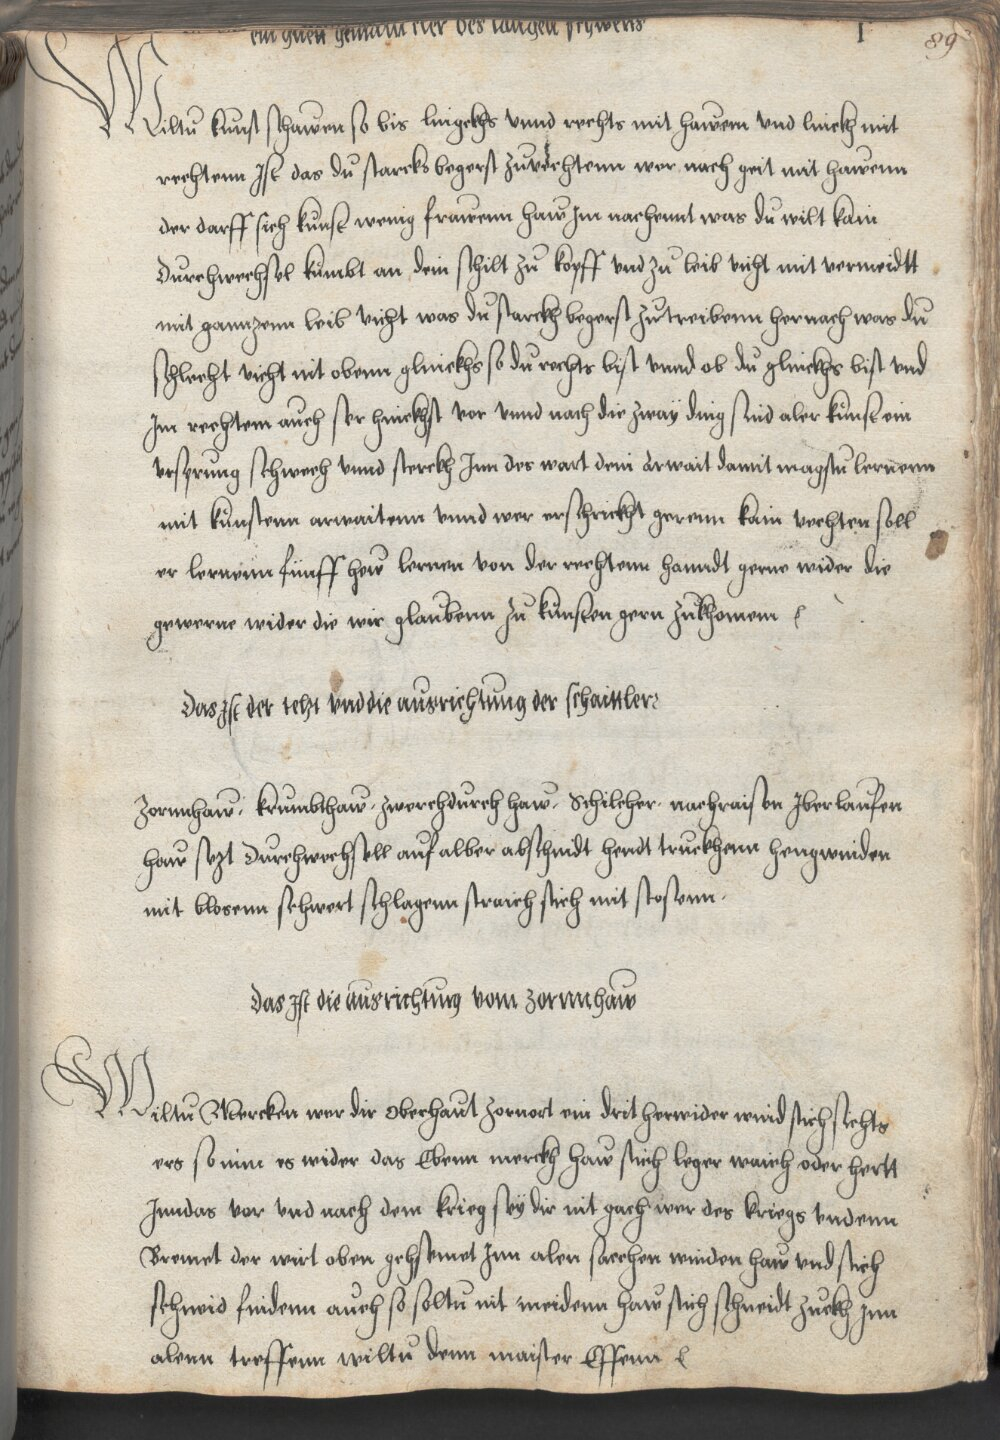 ein guett gemaine ler des langen schwerts
89
Wiltu kunst schawen so bis lingekhs vnnd rechts mit hawem vnd linckh mit
rechtenn Ist das du starcks begerst zuvechtenn wer nach geit mit hawenn
der darff sich kunst wenig frawenn haw Im nachennt was du wilt kain
Durchwechsel kumbt an dein schilt zu kopff vnd zu leib vicht mit vermeidtt
mit gannzenn leib vicht was du starckh begerst zu treibenn hernach was du
schlecht vicht nit obenn glinckhs so du rechts bist vnnd ob du glinckhs bist vnd
Im rechtem auch ser hinckhst vor vnnd nach die zway ding sind aler kunst ein
vrsprung schwech vnnd sterckh Inn des wart dein arwait damit magstu lernenn
mit kunstenn arwaitenn vnnd wer erschrickht gerenn kain vechten soll
er lernenn fünff hew lernen von der rechtenn hanndt gerne wider die
gewerne wider die wir glaubenn zu kunsten gern zukhomem
Das Ist der text vnd die ausrichtung der schaittler
Zornhaw krumbthaw zwerchdurch haw Schilcher nachraisen Iberlaufen
haw sezt Durchwechsell auf alber abschnidt hendt truckhenn hengwinden
mit blosenn schwert schlagenn straich stich mit stosenn
Das Ist die ausrichtung vom zornnhaw
Wiltu Mercken wer dir oberhaut zornort ein drit herwider wind stich sichts
ers so nim es wider das Ebenn merckh haw stich leger waich oder hertt
Inndas vor vnd nach dem krieg sey dir nit gach wer des kriegs vndenn
Remet der wirt oben geschemet Inn alen sacchen winden haw vnd stich
schnid findenn auch so soltu nit meidenn haw stich schneidt zuckh Inn
alenn treffenn wiltu denn maister Effenn